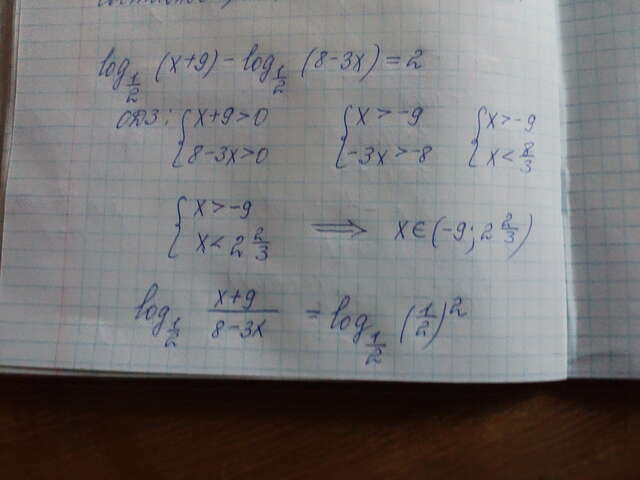 log_{1/2} (x+9) - log_{1/2} (8-3x) = 2
ОДЗ: { x+9>0 { x>-9 { x>-9
8-3x>0 -3x>-8 x<8/3
{ x>-9
x<2 2/3 ⟹ x∈(-9; 2 2/3)
log_{1/2} (x+9)/(8-3x) = log_{1/2} (1/2)^2